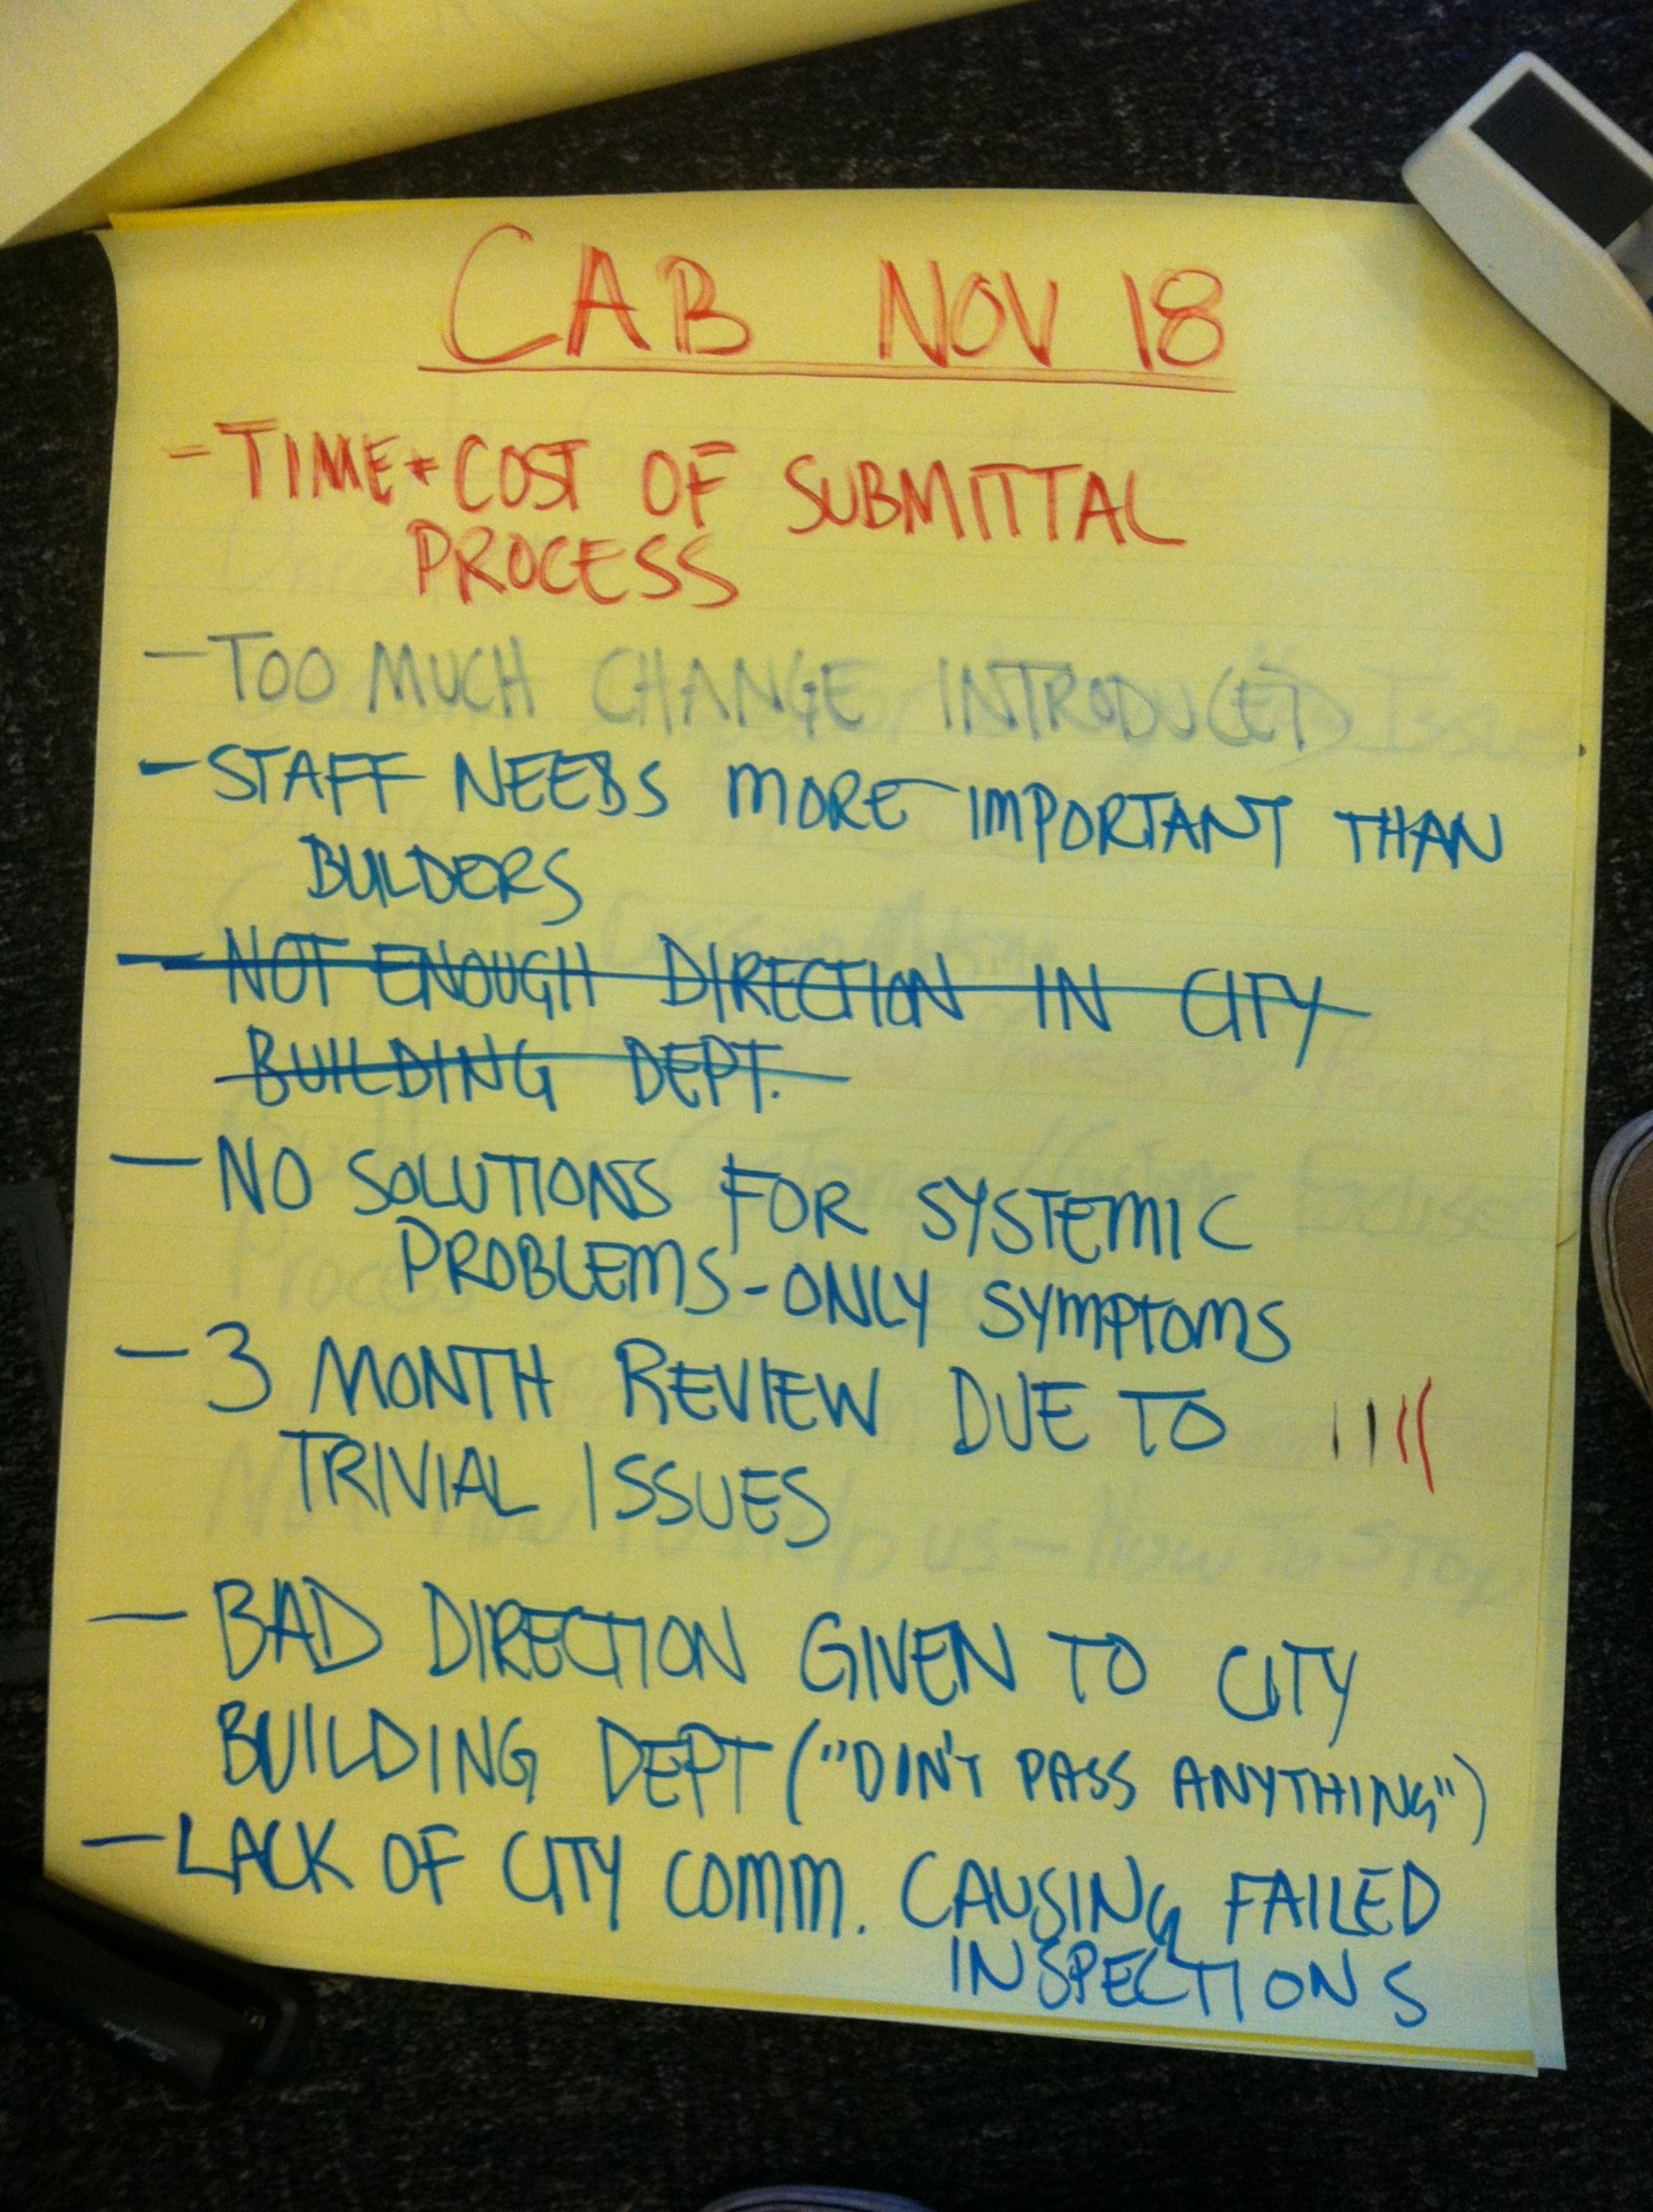 CAB NOV 18
- TIME + COST OF SUBMITTAL
PROCESS
- TOO MUCH CHANGE INTRODUCED
- STAFF NEEDS MORE IMPORTANT THAN
BUILDERS
- NOT ENOUGH DIRECTION IN CITY
BUILDING DEPT.
- NO SOLUTIONS FOR SYSTEMIC
PROBLEMS - ONLY SYMPTOMS
- 3 MONTH REVIEW DUE TO
TRIVIAL ISSUES
- BAD DIRECTION GIVEN TO CITY
BUILDING DEPT ("DIN'T PASS ANYTHING")
- LACK OF CITY COMM. CAUSING FAILED
INSPECTIONS